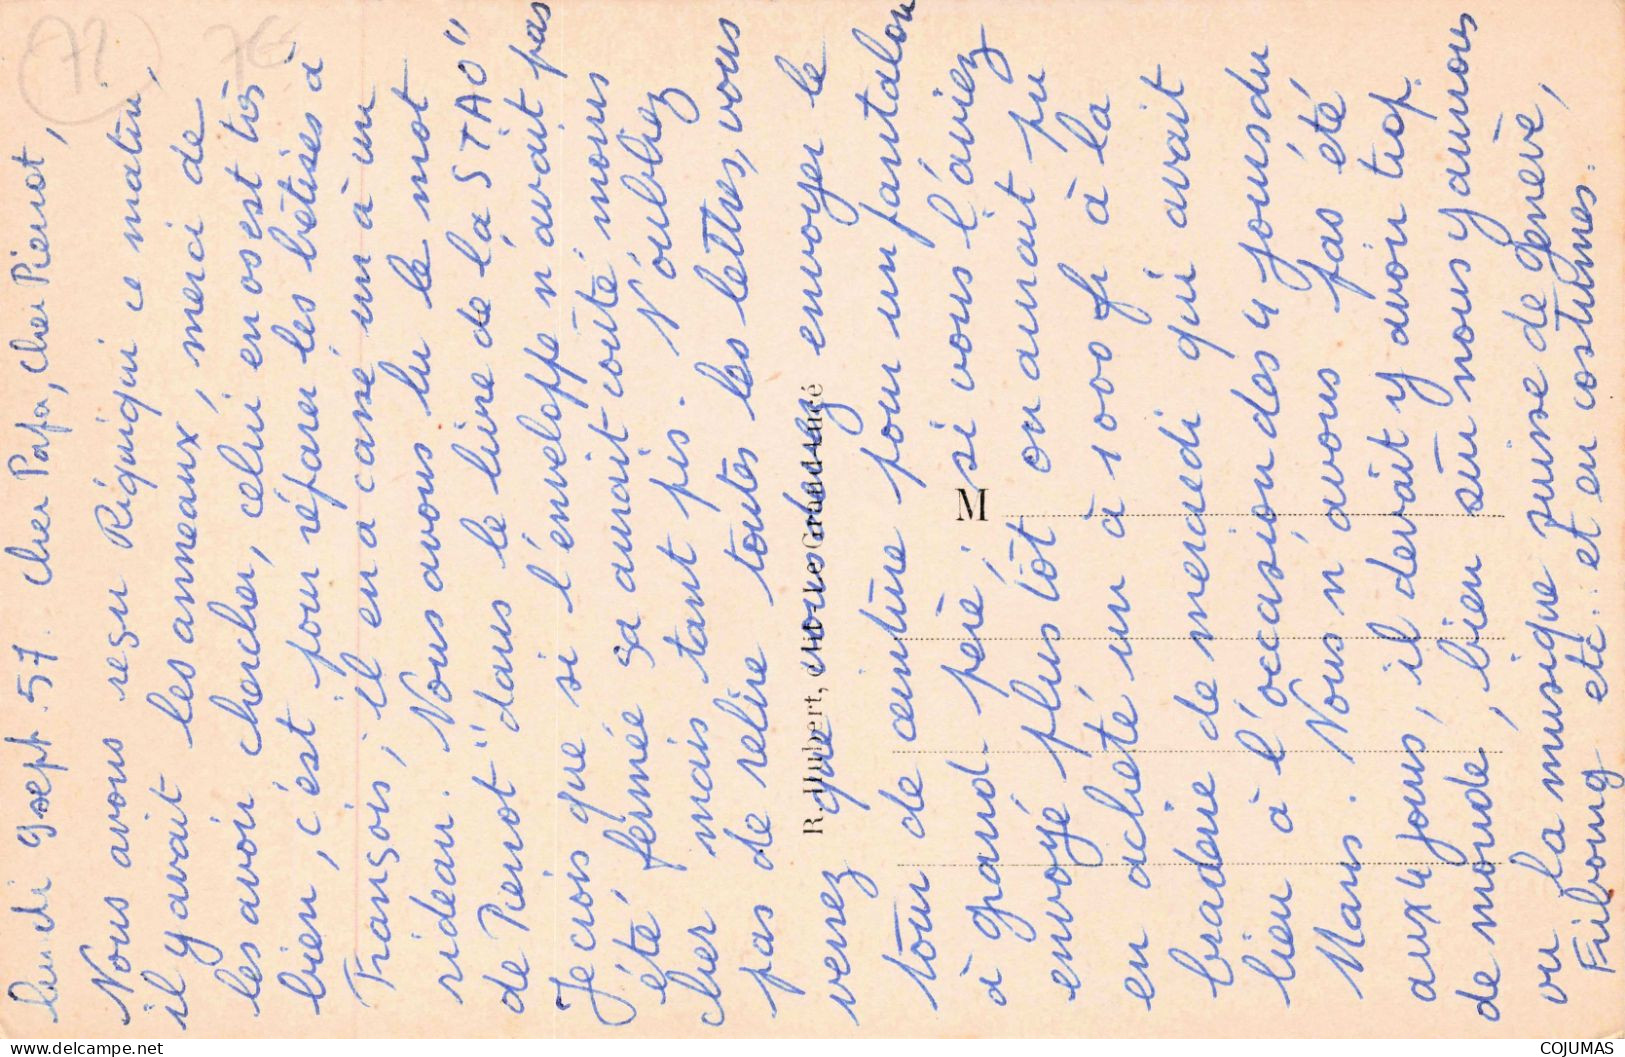 lundi 9 sept. 57. Cher Papa, Cher Pierrot,
Nous avons reçu Riquiqui ce matin,
il y avait les anneaux, merci de
les avoir chercher, celui en os est très
bien, c'est pour réparer les bêtises à
François, il en a cassé un à un
rideau. Nous avons lu le mot
de Pierrot "dans le livre de la STAO"
Je crois que si l'enveloppe n'avait pas
été fermée ça aurait coûté moins
cher mais tant pis. N'oubliez
pas de relire toutes les lettres, vous
verrez que envoyer le
tour de ceinture pour un pantalon
à grand-père, si vous l'aviez
envoyé plus tôt on aurait pu
en acheté un à 1000 fr à la
braderie de mercredi qui avait
lieu à l'occasion des 4 jours du
Mans. Nous n'avons pas été
aux 4 jours, il devait y avoir trop
de monde, bien sûr nous y aurions
vu la musique suisse de genève,
Fribourg etc... et en costumes.
R. Hubert,
M
72
76
COJUMAS